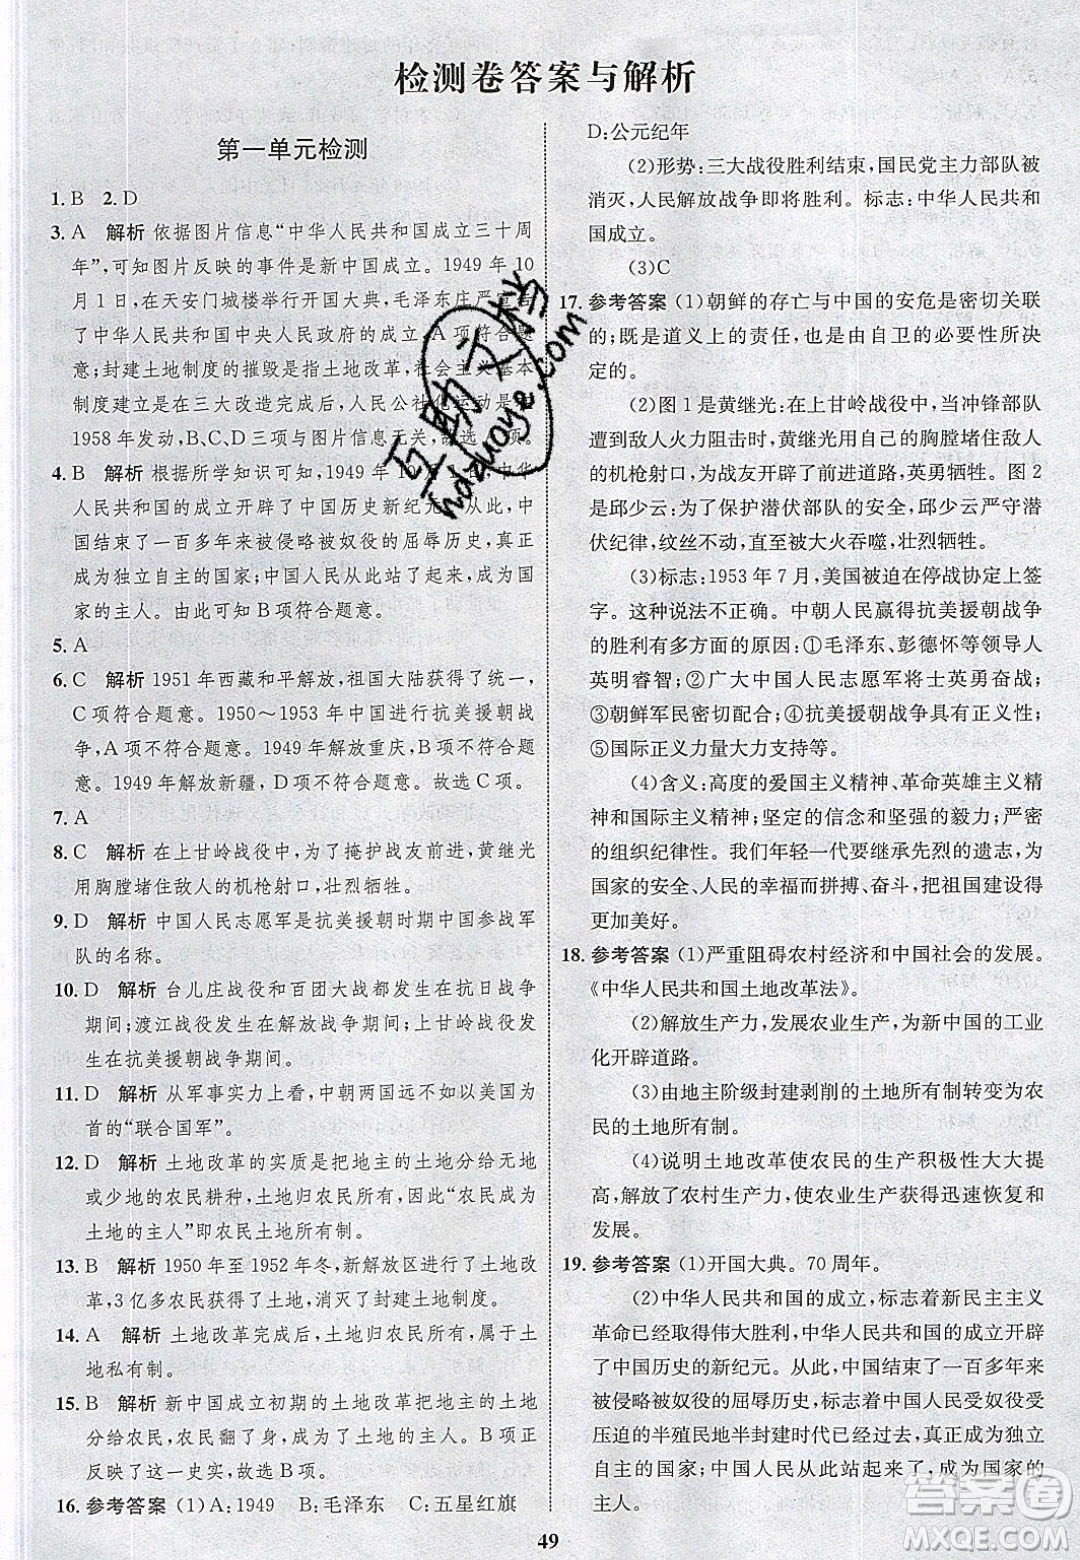 检测卷答案与解析
第一单元检测
1. B 2. D
3. A 解析 依据图片信息“中华人民共和国成立三十周
年”,可知图片反映的事件是新中国成立。1949 年 10
月 1 日,在天安门城楼举行开国大典,毛泽东庄严宣布
了中华人民共和国中央人民政府的成立。A 项符合题
意;封建土地制度的摧毁是指土地改革,社会主义基本
制度建立是在三大改造完成后,人民公社化运动是于
1958 年发动,B、C、D 三项与图片无关,故选 A 项。
4. B 解析 根据所学知识可知,1949 年 10 月 1 日,中华
人民共和国的成立开辟了中国历史新纪元。从此,中
国结束了一百多年来被侵略被奴役的屈辱历史,真正
成为独立自主的国家;中国人民从此站起来了,成为国
家的主人。由此可知 B 项符合题意。
5. A
6. C 解析 1951 年西藏和平解放,祖国大陆获得了统一,
C 项符合题意。1950～1953 年中国进行抗美援朝战
争,A 项不符合题意。1949 年解放重庆,B 项不符合题
意。1949 年解放新疆,D 项不符合题意。故选 C 项。
7. A
8. C 解析 在上甘岭战役中,为了掩护战友进攻,黄继光
用胸膛堵住敌人的机枪射口,壮烈牺牲。
9. D 解析 中国人民志愿军是抗美援朝时期中国参战军
队的名称。
10. D 解析 台儿庄战役和百团大战都发生在抗日战争
期间;渡江战役发生在解放战争期间;上甘岭战役发
生在抗美援朝战争期间。
11. D 解析 从军事实力上看,中朝两国远不如以美国为
首的“联合国军”。
12. D 解析 土地改革的实质是把地主的土地分给无地
或少地的农民耕种,土地归农民所有,因此“农民成为
土地的主人”即农民土地所有制。
13. B 解析 1950 年至 1952 年冬,新解放区进行了土地改
革,3 亿多农民获得了土地,消灭了封建土地制度。
14. A 解析 土地改革完成后,土地归农民所有,属于土
地私有制。
15. B 解析 新中国成立初期的土地改革把地主的土地
分给农民,农民翻了身,成了土地的主人。B 项中的图
片反映了这一史实,故选 B 项。
16. 参考答案 (1)A:1949 B:毛泽东 C:五星红旗
D:公元纪年
(2)形势:三大战役胜利结束,国民党主力部队被
消灭,人民解放战争即将胜利。标志:中华人民共和
国成立。
(3)C
17. 参考答案 (1)朝鲜的存亡与中国的安危是密切关联
的;既是道义上的责任,也是由自卫的必要性所决
定的。
(2)图 1 是黄继光:在上甘岭战役中,当冲锋部队
遭到敌人火力阻击时,黄继光用自己的胸膛堵住敌人
的机枪射口,为战友开辟了前进道路,英勇牺牲。图 2
是邱少云:为了保护潜伏部队的安全,邱少云严守潜
伏纪律,纹丝不动,直至被大火吞噬,壮烈牺牲。
(3)标志:1953 年 7 月,美国被迫在停战协定上签
字。这种说法不正确。中朝人民赢得抗美援朝战争
的胜利有多方面的原因:①毛泽东、彭德怀等领导人
英明睿智;②广大中国人民志愿军将士英勇奋战;
③朝鲜军民密切配合;④抗美援朝战争具有正义性;
⑤国际正义力量大力支持等。
(4)含义:高度的爱国主义精神、革命英雄主义精
神和国际主义精神;坚定的信念和坚强的毅力;严密
的组织纪律性。我们年轻一代要继承先烈的遗志,为
国家的安全、人民的幸福而拼搏、奋斗,把祖国建设得
更加美好。
18. 参考答案 (1)严重阻碍农村经济和中国社会的发展。
《中华人民共和国土地改革法》。
(2)解放生产力,发展农业生产,为新中国的工业
化开辟道路。
(3)由地主阶级封建剥削的土地所有制转变为农
民的土地所有制。
(4)说明土地改革使农民的生产积极性大大提
高,解放了农村生产力,使农业生产迅速恢复和
发展。
19. 参考答案 (1)开国大典。70 周年。
(2)中华人民共和国的成立,标志着新民主主义
革命已经取得伟大胜利,中华人民共和国的成立开辟
了中国历史的新纪元。从此,中国结束了一百多年来
被侵略被奴役的屈辱历史,标志着中国人民受奴役受
压迫的半殖民地半封建时代已经过去,中国真正成为
独立自主的国家,中国人民从此站起来了,成为国家的
主人。
49
互助文档
hdzuoye.com
答案圈
MXQE.COM